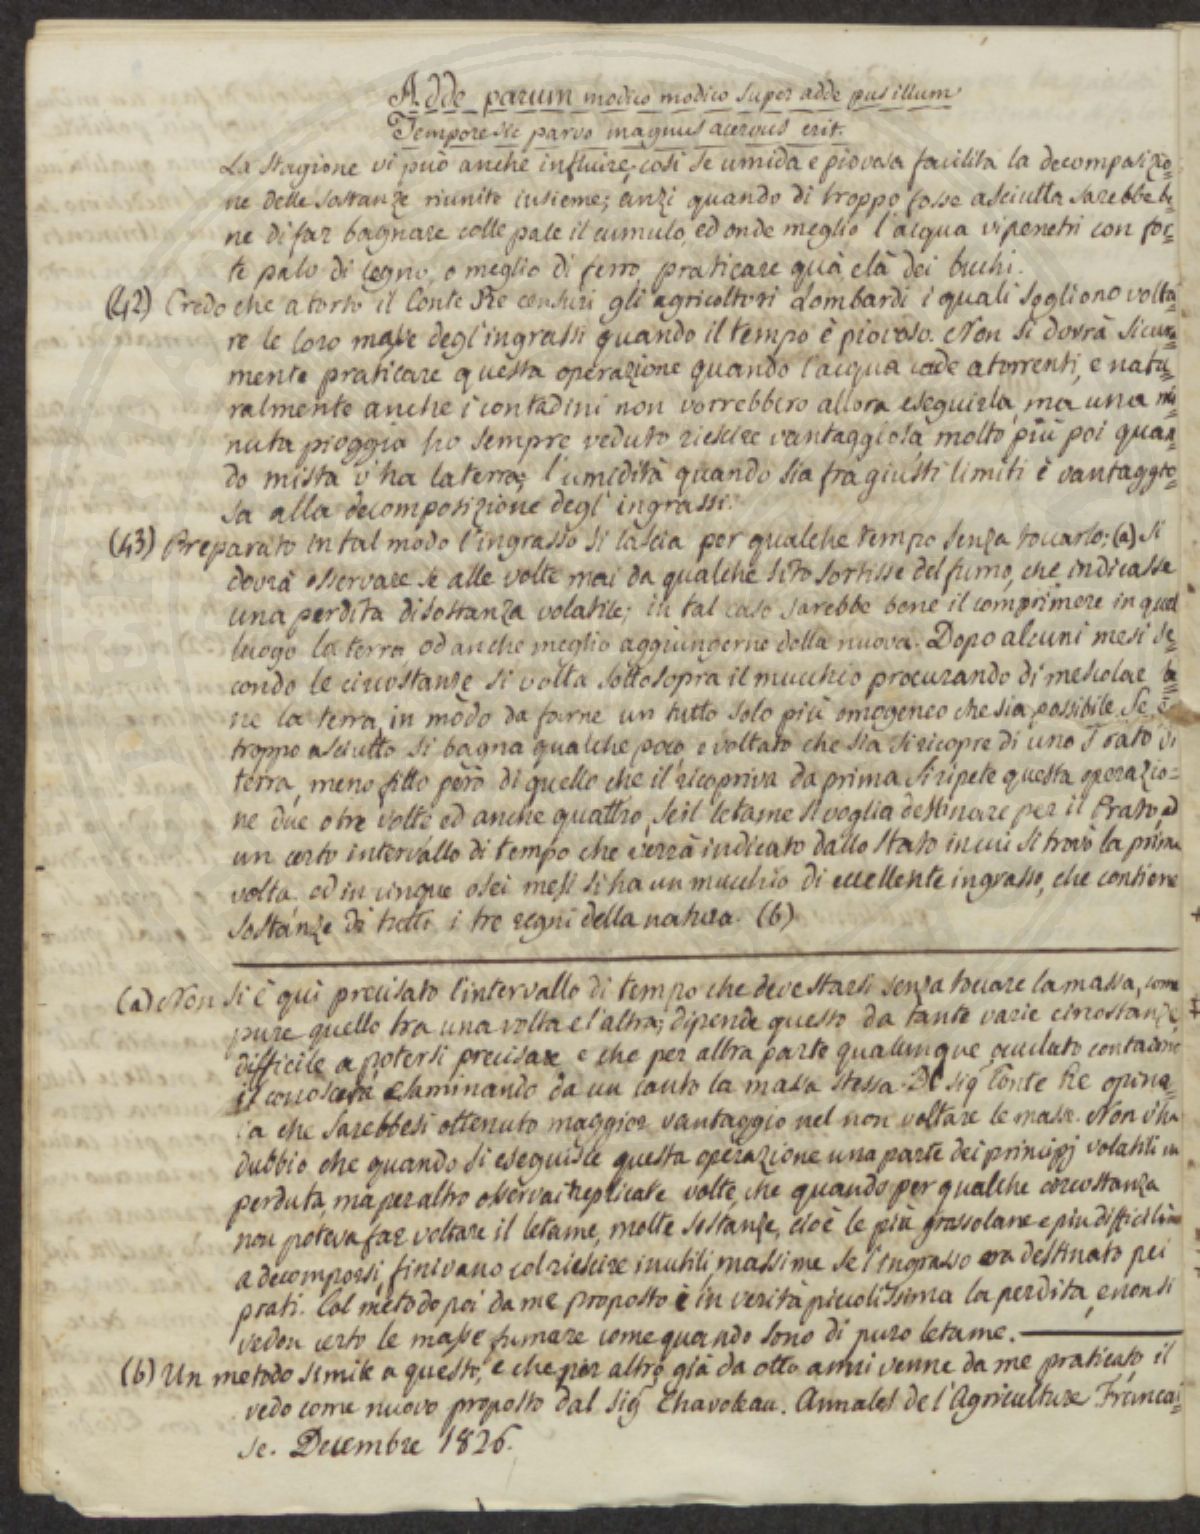 Adde parum modico modico super adde pusillum
Tempore sic parvo magnus acervus erit.
La stagione vi può anche influire, così se umida e piovosa facilita la decomposizio=
ne delle sostanze riunite insieme; anzi quando di troppo fosse asciutta sarebbe be=
ne di far bagnare colle pale il cumulo, ed onde meglio l'acqua vi penetri con for=
te palo di legno, o meglio di ferro, praticare quà e là dei buchi.
(42) Credo che a torto il Conte Re censuri gli agricoltori Lombardi i quali sogliono volta=
re le loro masse degl'ingrassi quando il tempo è piovoso. Non si dovrà sicura=
mente praticare questa operazione quando l'acqua cade a torrenti, e natu=
ralmente anche i contadini non vorrebbero allora eseguirla, ma una mi=
nuta pioggia ho sempre veduto riescire vantaggiosa, molto più poi quan=
do mista v'ha la terra; l'umidità quando sia fra giusti limiti è vantaggio=
sa alla decomposizione degl'ingrassi.
(43) Preparato in tal modo l'ingrasso si lascia per qualche tempo senza toccarlo; (a) si
dovrà osservare se alle volte mai da qualche sito sortisse del fumo, che indicasse
una perdita di sostanza volatile; in tal caso sarebbe bene il comprimere in quel
luogo la terra, od anche meglio aggiungerne della nuova. Dopo alcuni mesi se=
condo le circostanze si volta sottosopra il mucchio procurando di mescolar be=
ne la terra, in modo da farne un tutto solo più omogeneo che sia possibile. Se è
troppo asciutto si bagna qualche poco e voltato che sia si ricopre di uno strato di
terra, meno fitto però di quello che il ricopriva da prima. Si ripete questa operazio=
ne due o tre volte ed anche quattro, se il letame si voglia destinare per il Prato, ad
un certo intervallo di tempo che verrà indicato dallo stato in cui si trovò la prima
volta. ed in cinque o sei mesi si ha un mucchio di eccellente ingrasso, che contiene
sostanze di tutti i tre regni della natura. (b)
(a) Non si è qui precisato l'intervallo di tempo che deve starsi senza toccare la massa, come
pure quello tra una volta e l'altra; dipende questo da tante varie circostanze,
difficile a potersi precisare e che per altra parte qualunque oculato contadino
il conoscerà esaminando da un canto la massa stessa. Il Sig Conte Re opina=
va che sarebbesi ottenuto maggior vantaggio nel non voltare le masse. Non v'ha
dubbio che quando si eseguisce questa operazione una parte dei principj volatili va
perduta, ma per altro osservai replicate volte, che quando per qualche circostanza
non poteva far voltare il letame, molte sostanze, cioè le più grassolane e più difficili
a decomporsi, finivano col riescire inutili, massime se l'ingrasso era destinato pei
prati. Col metodo poi da me proposto è in verità piccolissima la perdita, e non si
vedon certo le masse fumare come quando sono di puro letame.
(b) Un metodo simile a questo, e che per altro già da otto anni venne da me praticato, il
vedo come nuovo proposto dal Sig Chavoteau. Annales de l'Agriculture Francai=
se. Decembre 1826.